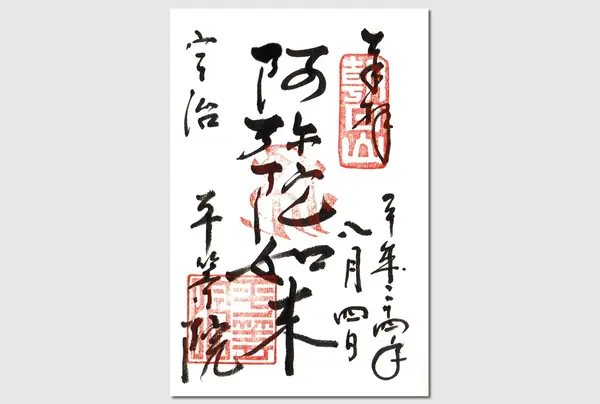 奉拝
平成二十四年
八月四日
阿弥陀如来
宇治
平等院